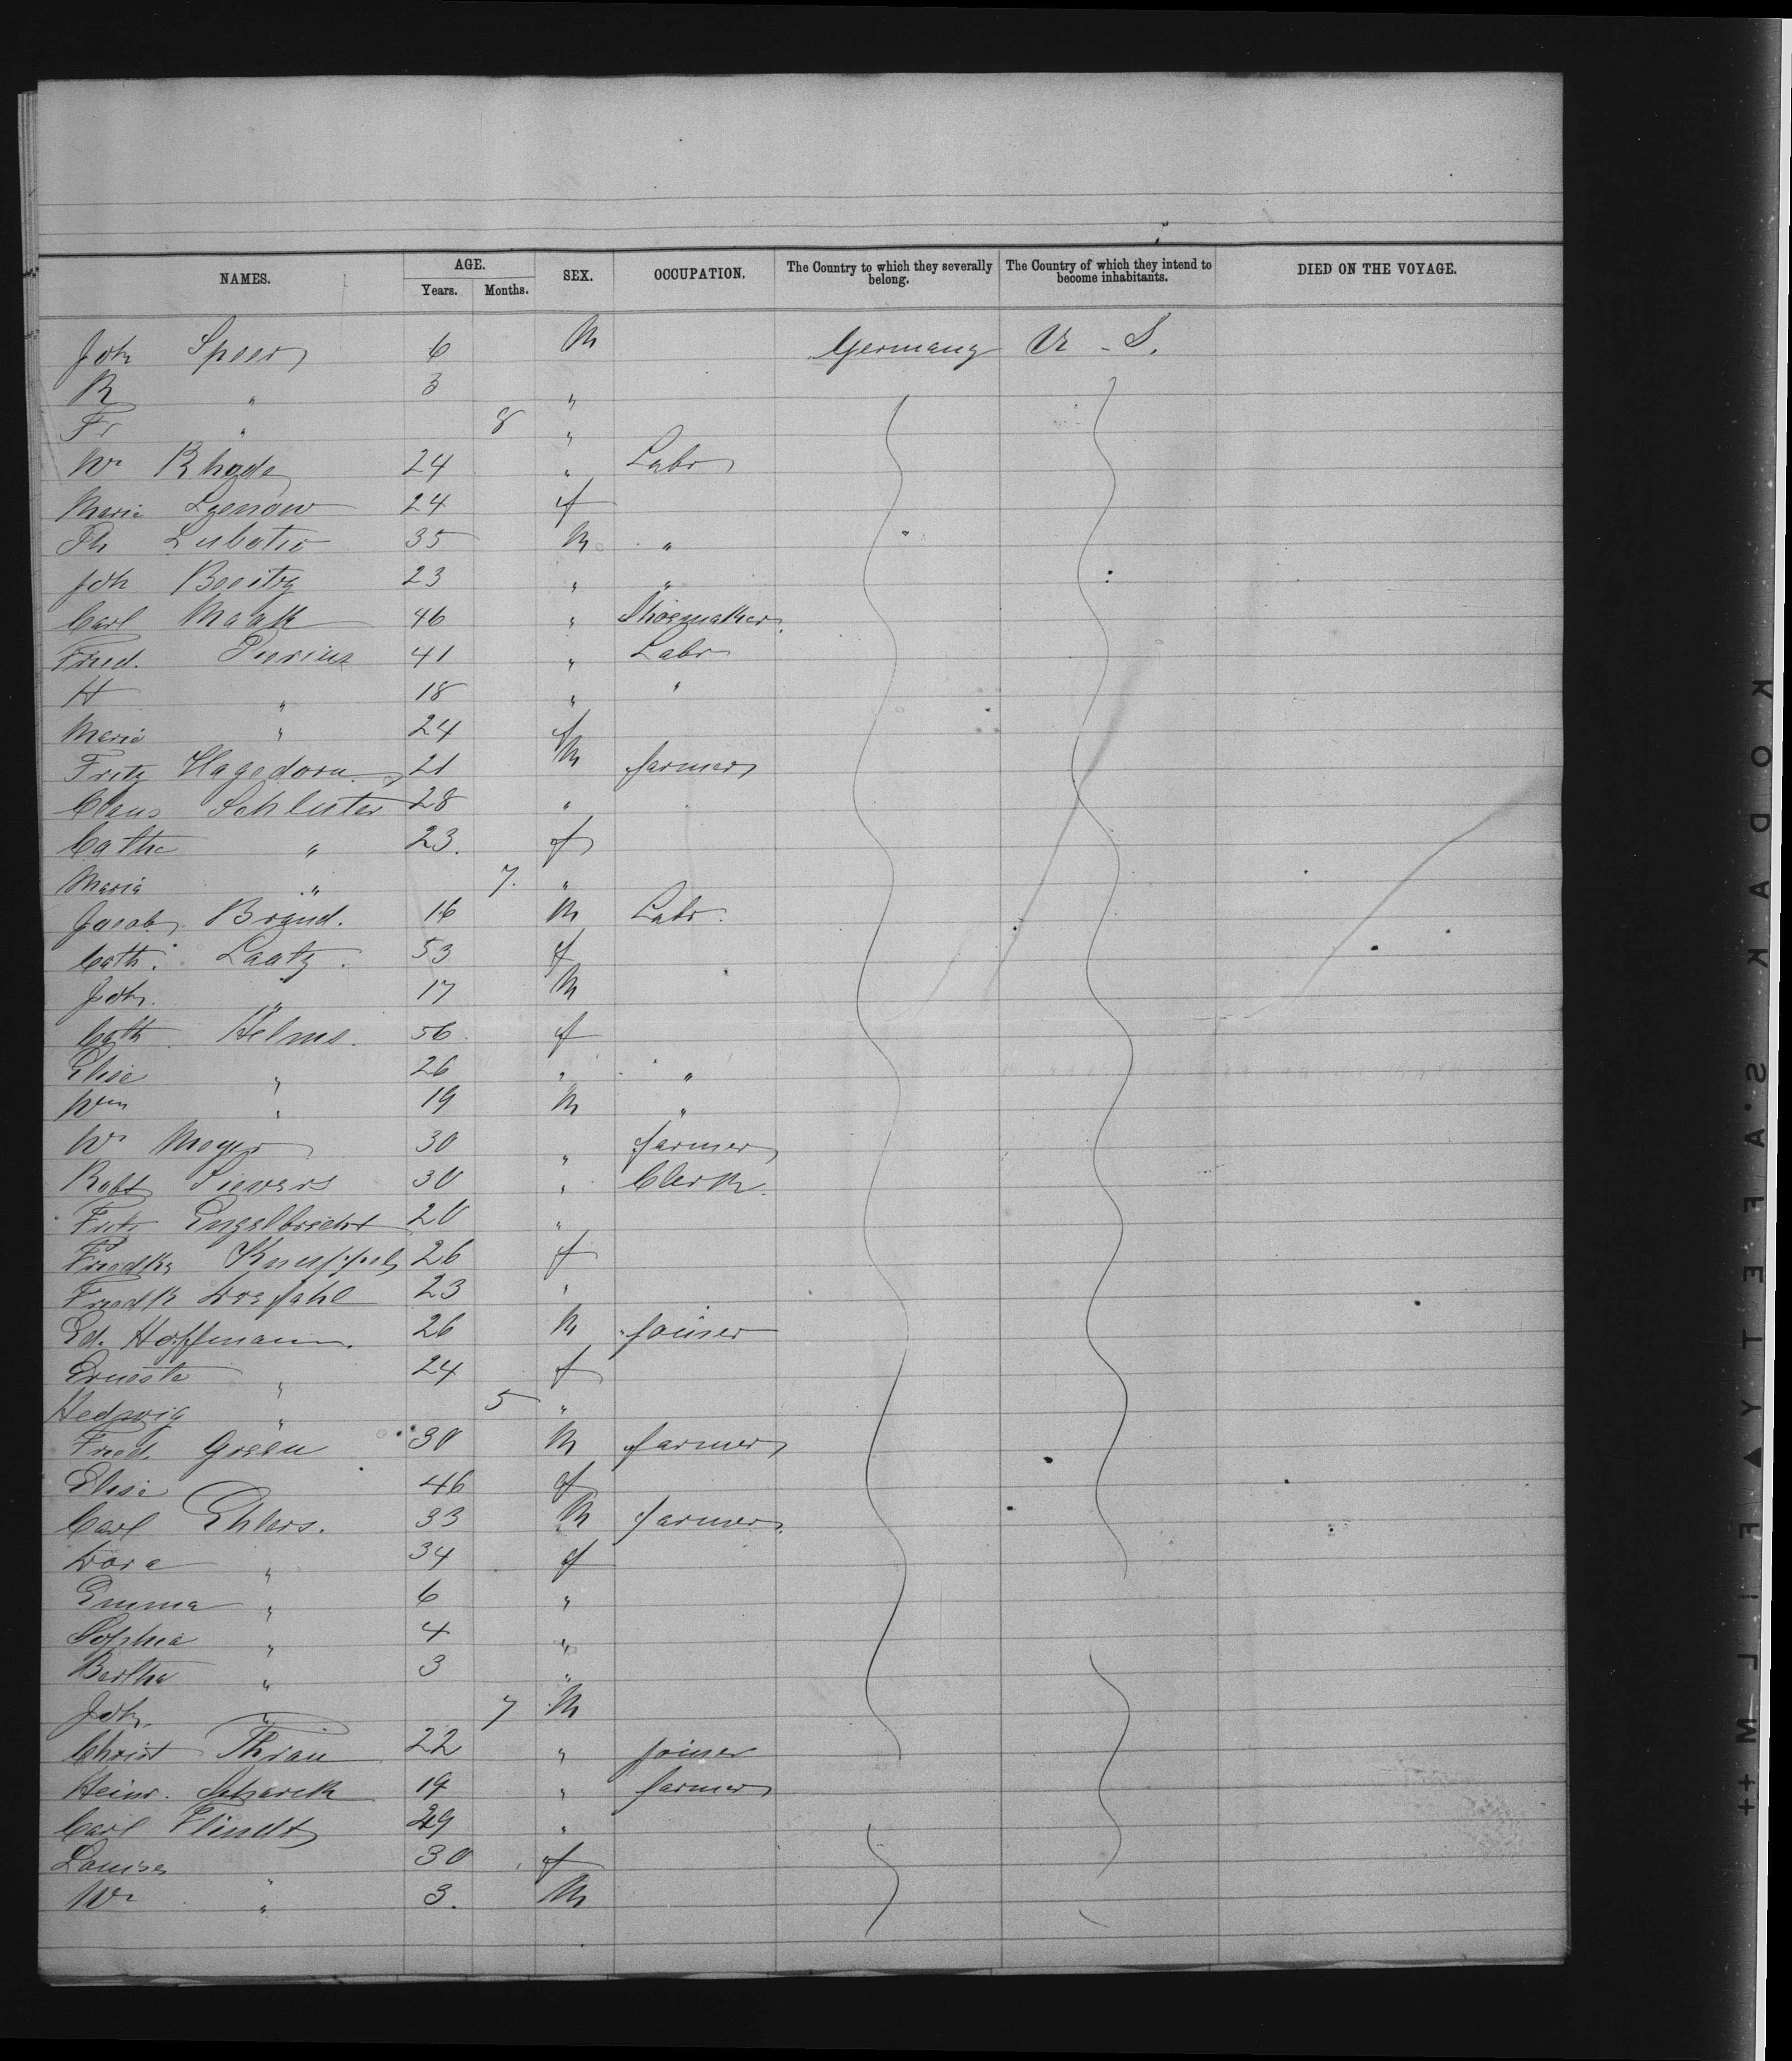 NAMES. AGE. Years. Months. SEX. OCCUPATION. The Country to which they severally belong. The Country of which they intend to become inhabitants. DIED ON THE VOYAGE.
Joh Speer 6 M Germany U. S.
R " 3 "
Fr " 8 "
Wm Rhode 24 " Labr
Maria 24 f
35 M "
Joh 23 " "
Carl Maak 46 " Shoemaker
Fred. 41 " Labr
H " 18 " "
Maria " 24 f
Fritz Hagedorn 21 M farmer
Claus Schluter 28 "
Cathe " 23. f
Maria " 7. "
Jacob Brand. 16 M Labr.
Cath. Laatz. 53 f
Joh. " 17 M
Cath. Helms. 56. f
Elise " 26 " "
Wm " 19 M "
Wm Meyer 30 " farmer
Robt Sievers 30 " Clerk.
Engelbrecht 20 "
Friedke Knuppel 26 f
Friedk 23 "
Ed. Hoffmann. 26 M joiner
Erneste " 24 f
Hedwig " 5 "
Fred. Green 30 M farmer
Elise 46 f
Carl Ehlers. 33 M farmer.
Dora " 34 f
Emma " 6 "
Sophia " 4 "
Bertha " 3 "
Joh. " 7 M
Christ Thrau 22 " joiner
Heinr. 19 " farmer
Carl Flindt 29 "
Louise " 30 f
Wm " 3. M
KODAK·S·AFETY▲FILM++